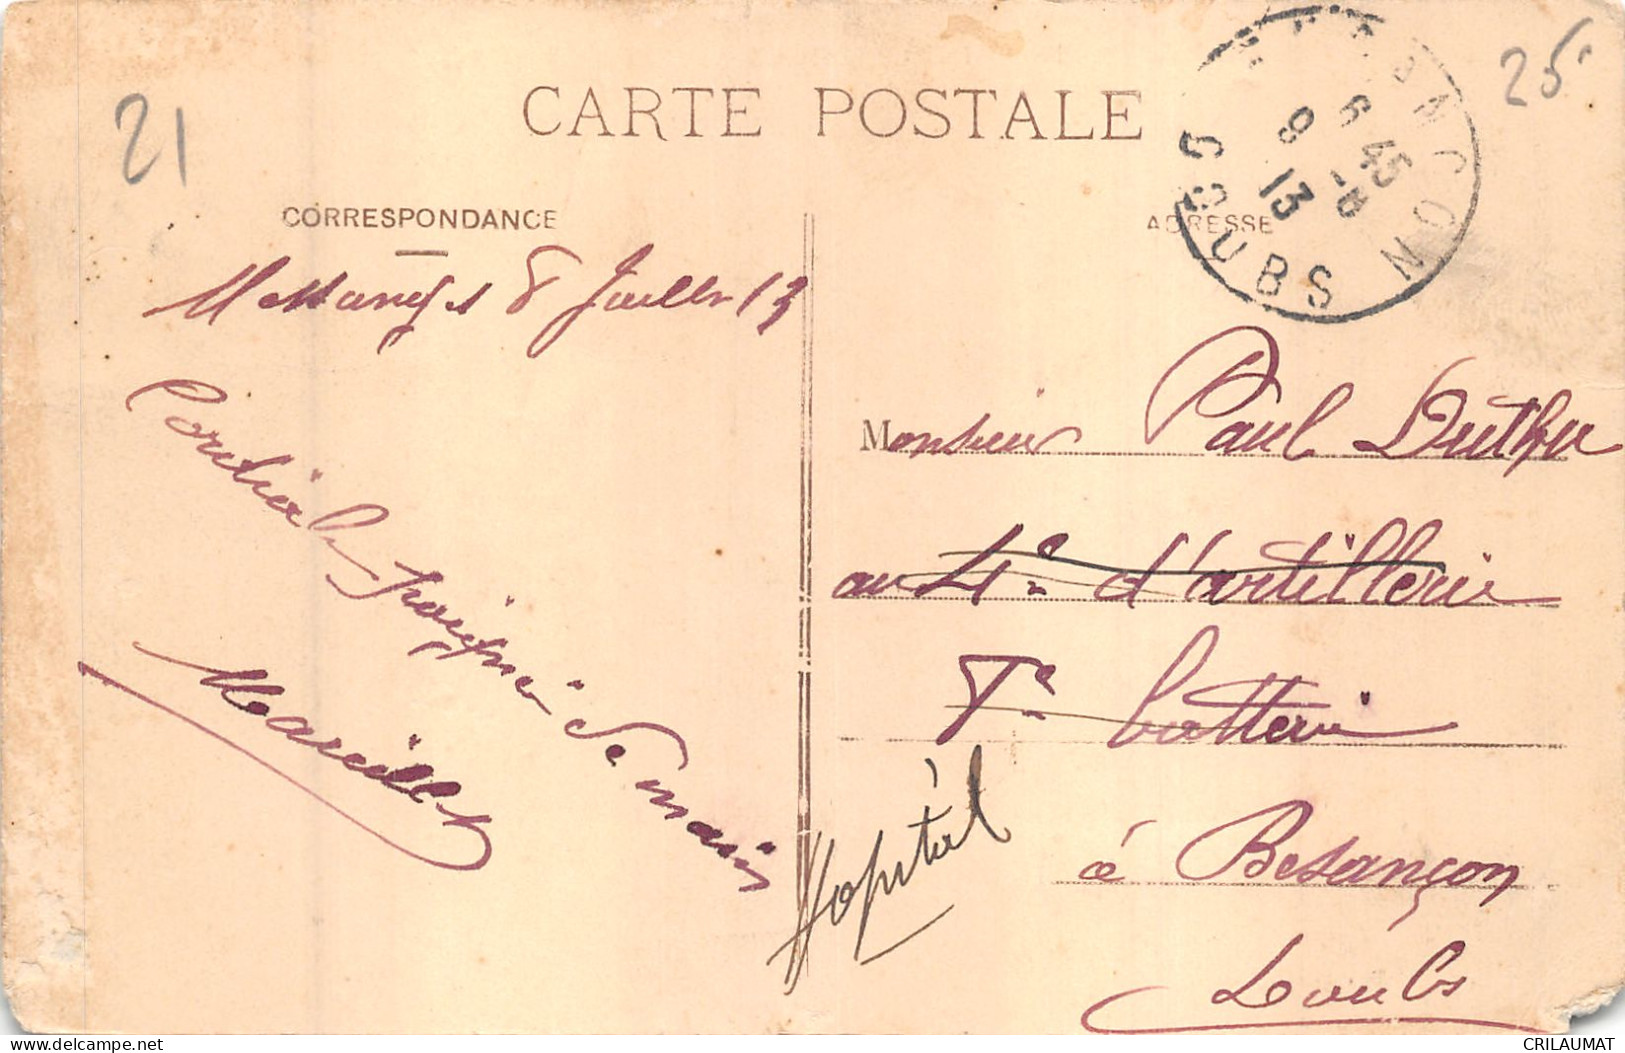 21
25
CARTE POSTALE
BESANCON
6 45
9 - 8
13
DOUBS
CORRESPONDANCE
ADRESSE
Messanges 8 Juillet 13
Cordiale poignée de main
Mareillet
Monsieur Paul Duthu
au 4e d'artillerie
7e batterie
Hopital
à Besançon
Doubs
21
CRILAUMAT